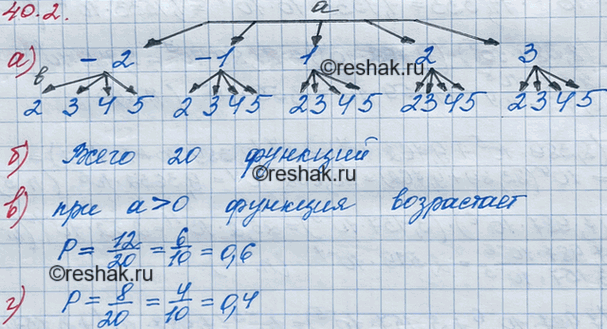 40.2.
a
а) -2 -1 1 2 3
в
2 3 4 5 2 3 4 5 2 3 4 5 2 3 4 5 2 3 4 5
©reshak.ru
б) Всего 20 функций
©reshak.ru
в) при a>0 функция возрастает
P = 12/20 = 6/10 = 0,6
©reshak.ru
г) P = 8/20 = 4/10 = 0,4